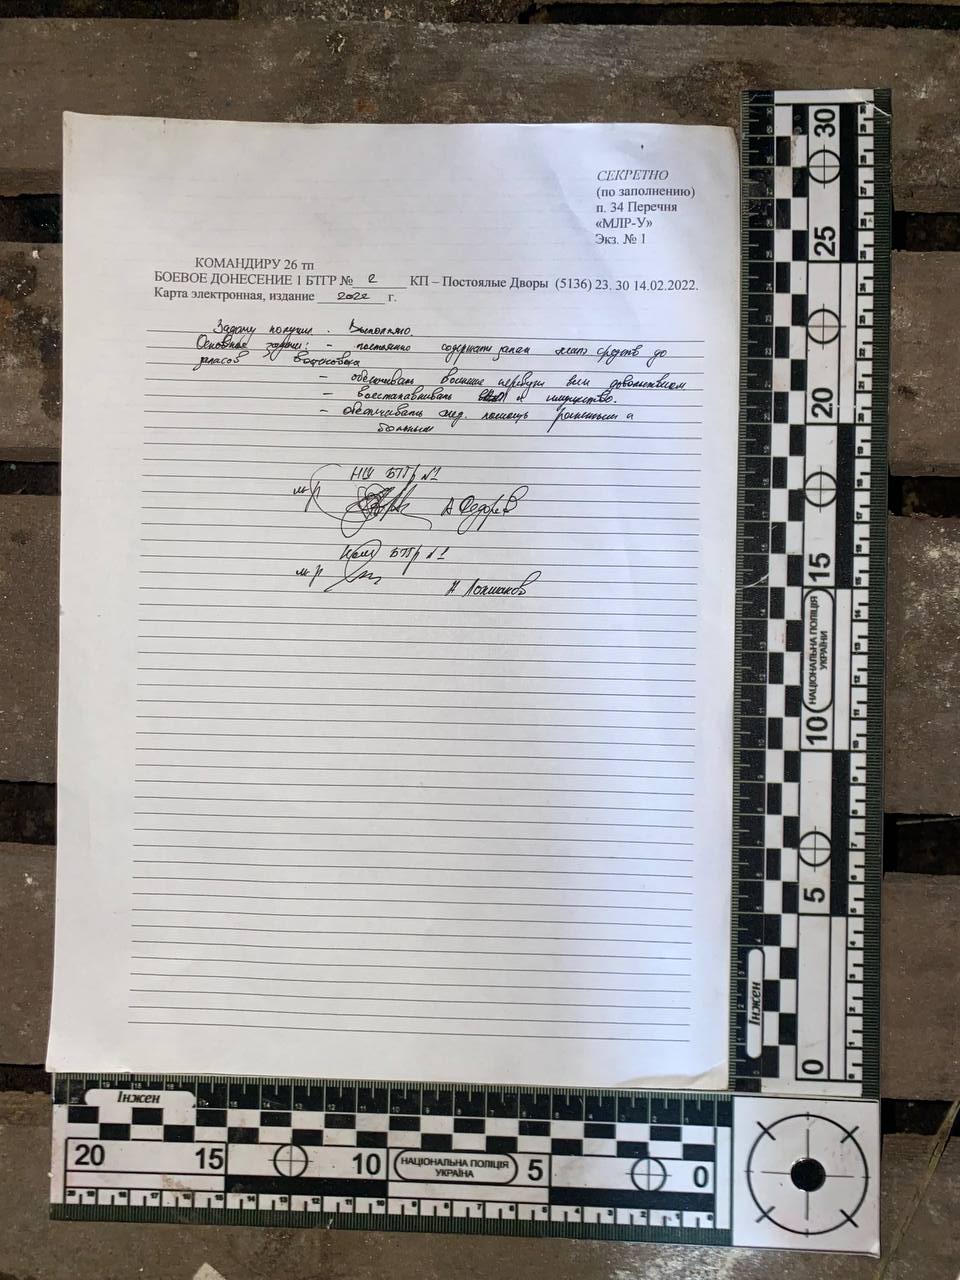 СЕКРЕТНО
(по заполнению)
п. 34 Перечня
«МЛР-У»
Экз. № 1
КОМАНДИРУ 26 тп
БОЕВОЕ ДОНЕСЕНИЕ 1 БТГР № 2 КП – Постоялые Дворы (5136) 23. 30 14.02.2022.
Карта электронная, издание 2022 г.
Задачу получил. Выполняю
Основные задачи: - постоянно содержать запам средств до
запасов
- обеспечивать вещевым довольствием
- восстанавливать и имущество.
- обеспечивать мед. помощь раненным и
больным
НШ БТГр №1
м-р А Федорев
Ком БТГр №1
м-р
30
25
20
15
10
5
0
НАЦІОНАЛЬНА ПОЛІЦІЯ
УКРАЇНИ
Інжен
Інжен
20 15 10 5 0
НАЦІОНАЛЬНА ПОЛІЦІЯ
УКРАЇНА